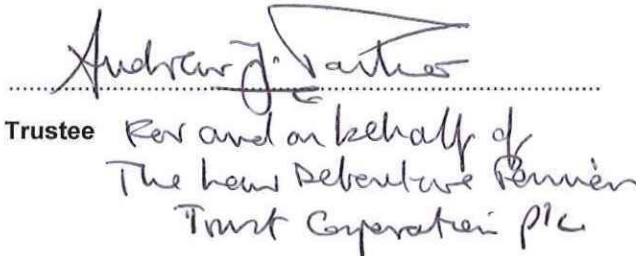 Andrew J.
Trustee For and on behalf of
The Law Debenture Pension
Trust Corporation plc